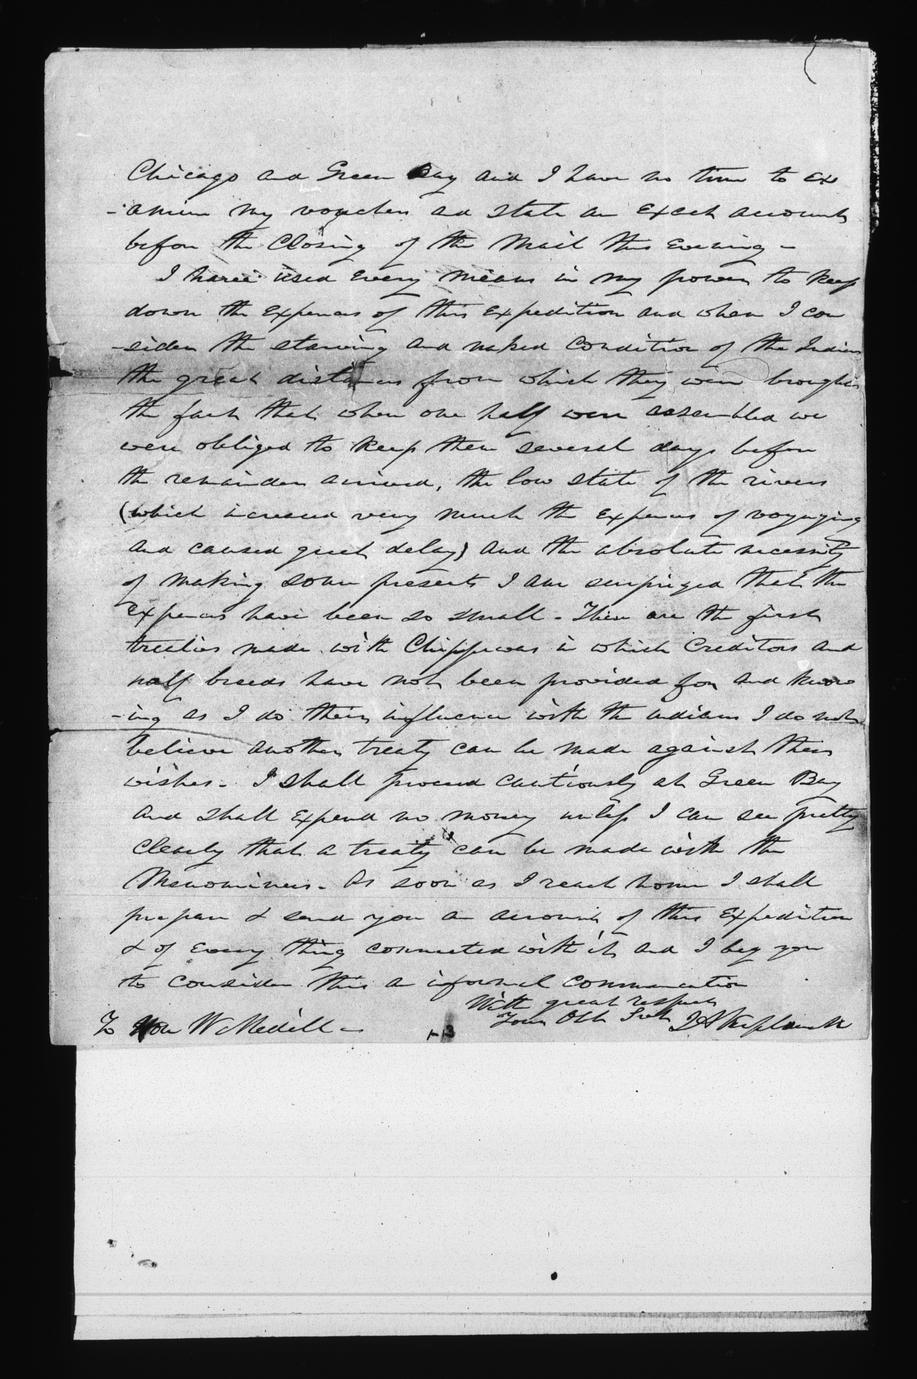 Chicago and Green Bay and I have no time to ex
-amine my vouchers and state an exact account
before the closing of the Mail this Evening -
I have used every means in my power to keep
down the expenses of this expedition and when I con
-sider the starving and naked condition of the Indians
the great distances from which they were brought
the fact that when one half were assembled we
were obliged to keep them several days before
the remainder arrived, the low state of the rivers
(which increased very much the expenses of voyaging
and caused great delay) and the absolute necessity
of making some presents I am surprized that the
expenses have been so small - These are the first
treaties made with Chippewas in which creditors and
half breeds have not been provided for and know
-ing as I do their influence with the indians I do not
believe another treaty can be made against their
wishes - I shall proceed cautiously at Green Bay
and shall expend no money unless I can see pretty
clearly that a treaty can be made with the
Menominees - As soon as I reach home I shall
prepare & send you an account of this expedition
& of every thing connected with it and I beg you
to consider this an informal communication
With great respect
Your Obt Svt
To Hon W Medill -